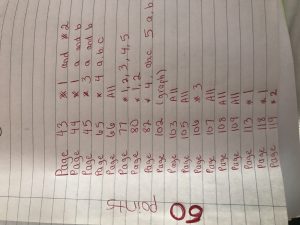 Page 43 * 1 and * 2
Page 44 * a and b
Page 45 * 3 a and b
Page 65 * 4 a b c
Page 66 All
Page 77 * 1, 2, 3, 4, 5
Page 80 * 1, 2
Page 87 * 4. abc 5 a, b
Page 102 (graph)
Page 103 All
Page 105 All
Page 106 * 3
Page 107 All
Page 108 All
Page 109 All
Page 113 * 1
Page 118 * 1
Page 119 * 2
60 points